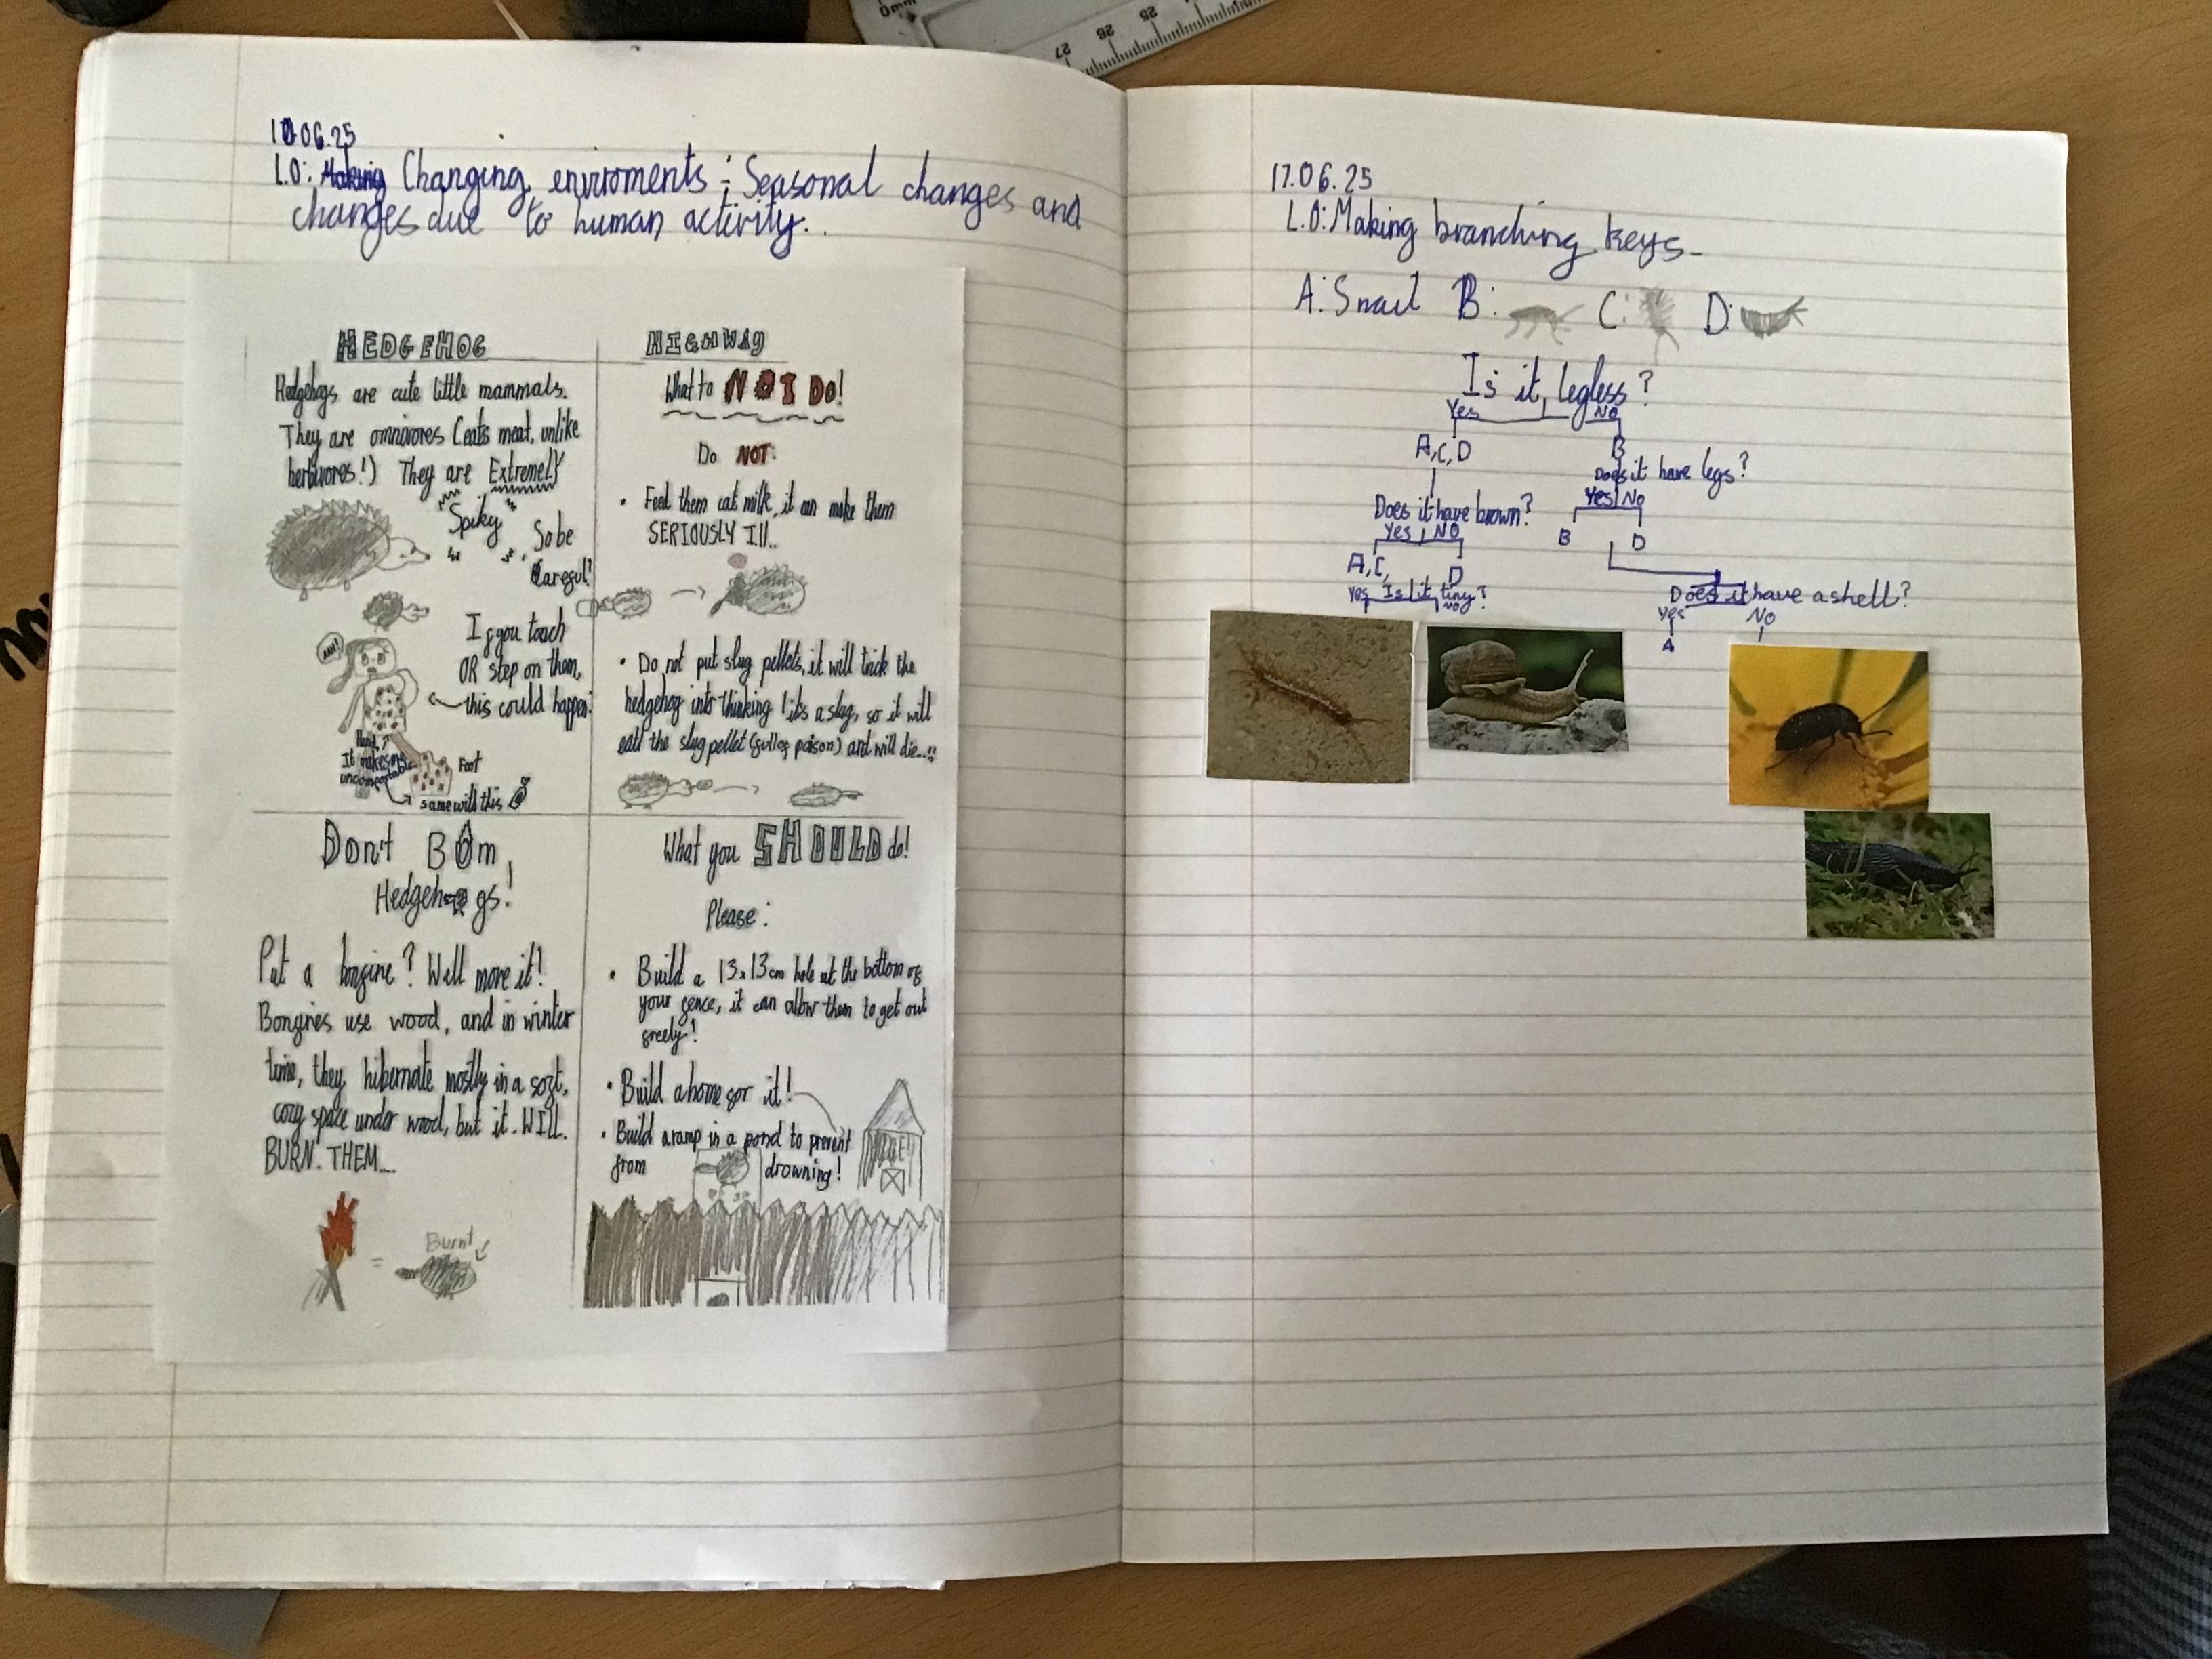 10.06.25
L.O: Making Changing enviroments: Seasonal changes and
changes due to human activity..
HEDGEHOG
Hedgehogs are cute little mammals.
They are omnivores (eats meat, unlike
herbivores!) They are ExtremelY
Spiky
So be
Careful!
If you touch
OR step on them,
this could happen!
AAH!
Hand,
It makes me
uncomfortable
Foot
same with this
HIGHWAY
What to NOT DO!
Do NOT:
• Feed them cat milk, it can make them
SERIOUSLY Ill..
• Do not put slug pellets, it will trick the
hedgehog into thinking its a slug, so it will
eat the slug pellet (full of poison) and will die...!!
Don't BOm
Hedgehogs!
Put a bonfire? Well move it!
Bonfires use wood, and in winter
time, they hibernate mostly in a soft,
cozy space under wood, but it. WILL.
BURN. THEM....
Burnt
What you SHOULD do!
Please:
• Build a 13x13cm hole at the bottom of
your fence, it can allow them to get out
freely!
• Build a home for it!
• Build a ramp in a pond to prevent
from drowning!
17.06.25
L.O: Making branching keys.
A: Snail B: C: D:
Is it legless?
Yes No
A,C,D B
Does it have legs?
Yes No
B D
Does it have brown?
Yes NO
A,C, D
Is it tiny?
Yes NO
Does it have a shell?
Yes No
A
27 26 25